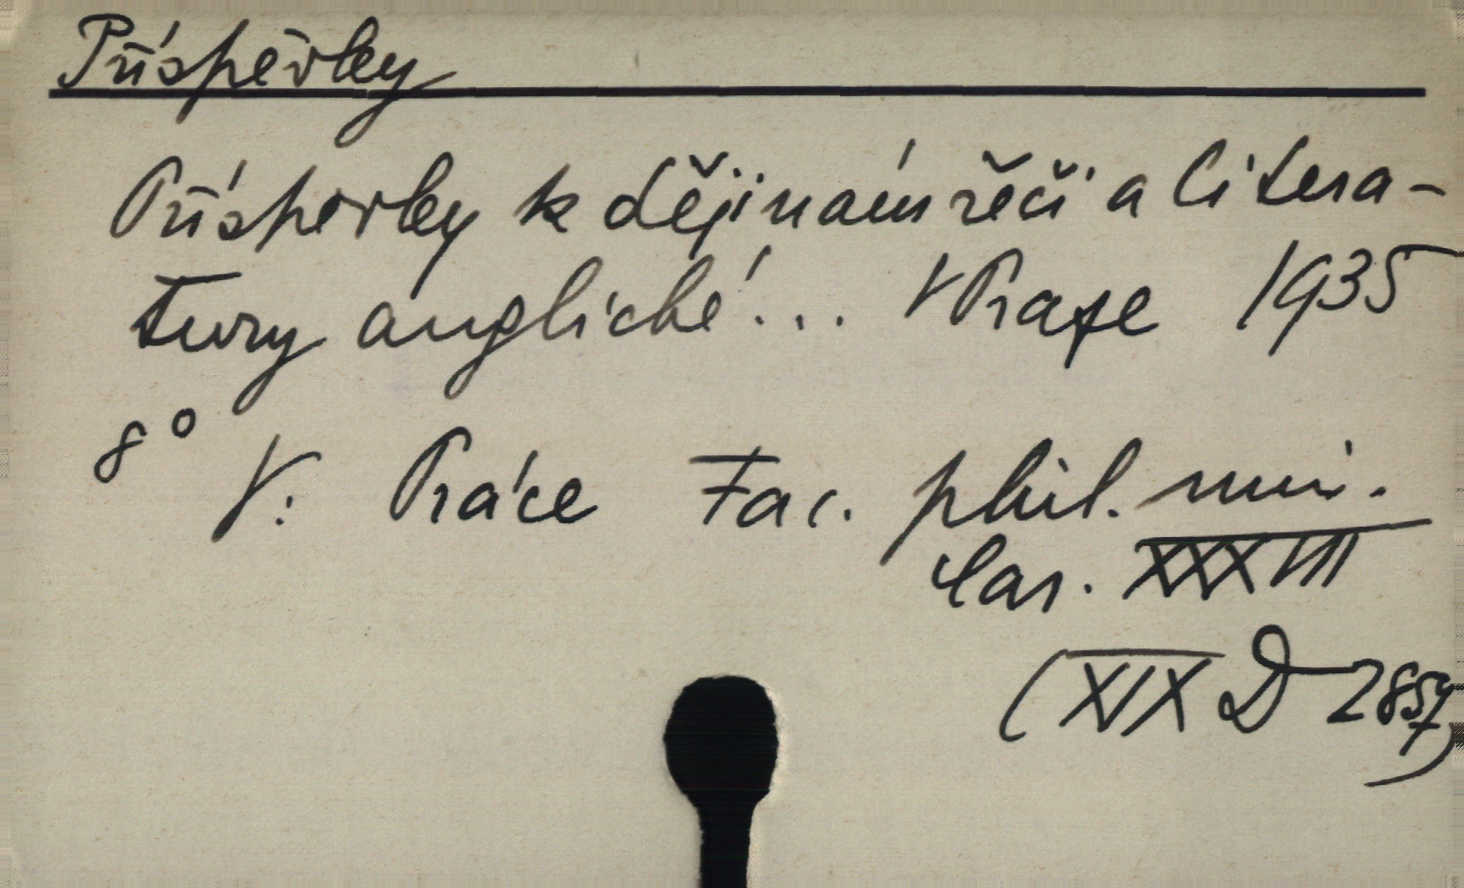 Příspěvky
Příspěvky k dějinám řeči a litera-
tury anglické... V Praze 1935
8°
V: Práce Fac. phil. univ.
Car. XXXVIII
(XIX D 2857)